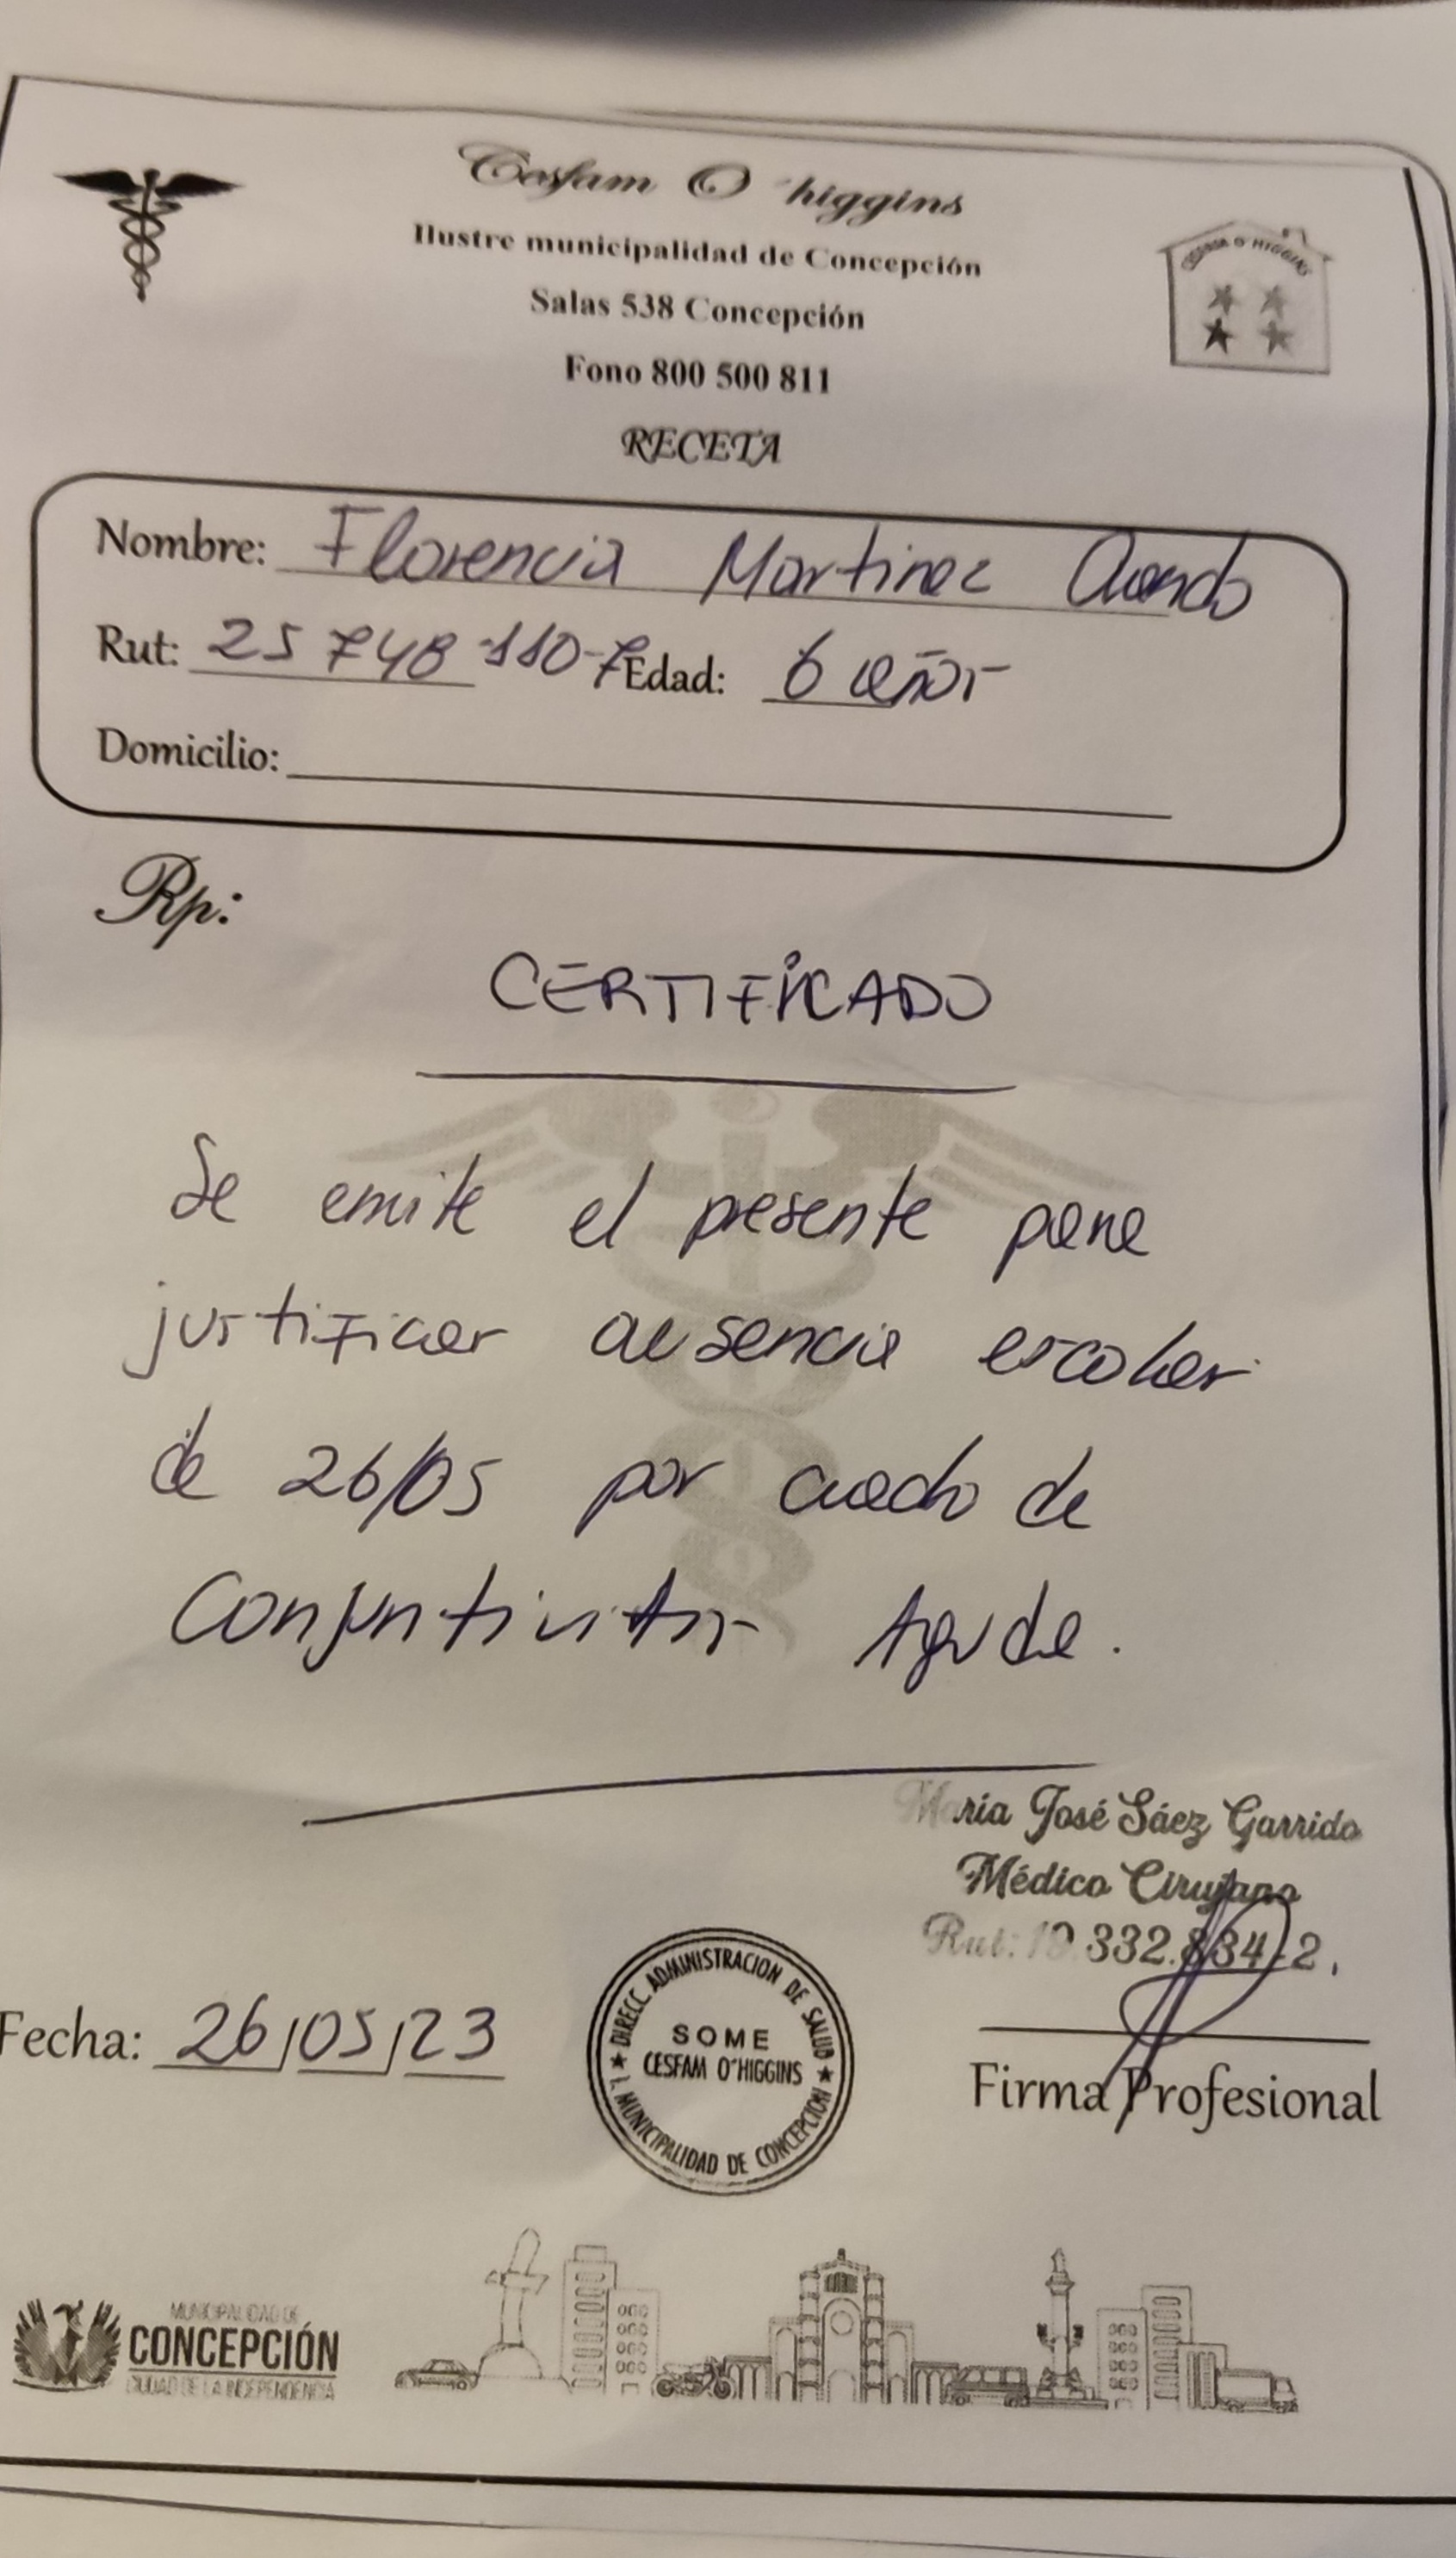 Cesfam O´higgins
Ilustre municipalidad de Concepción
Salas 538 Concepción
Fono 800 500 811
RECETA
Nombre: Florencia Martinez
Rut: 25 748 110-7 Edad: 6 años
Domicilio:
Rp:
CERTIFICADO
Se emite el presente para
justificar ausencia escolar
de 26/05 por cuadro de
Conjuntivitis Aguda.
María José Sáez Garrido
Médico Cirujano
Rut: 332.834-2
DIRECC. ADMINISTRACION DE SALUD
SOME
CESFAM O'HIGGINS
I. MUNICIPALIDAD DE CONCEPCION
Fecha: 26/05/23
Firma Profesional
MUNICIPALIDAD DE
CONCEPCIÓN
CIUDAD DE LA INDEPENDENCIA